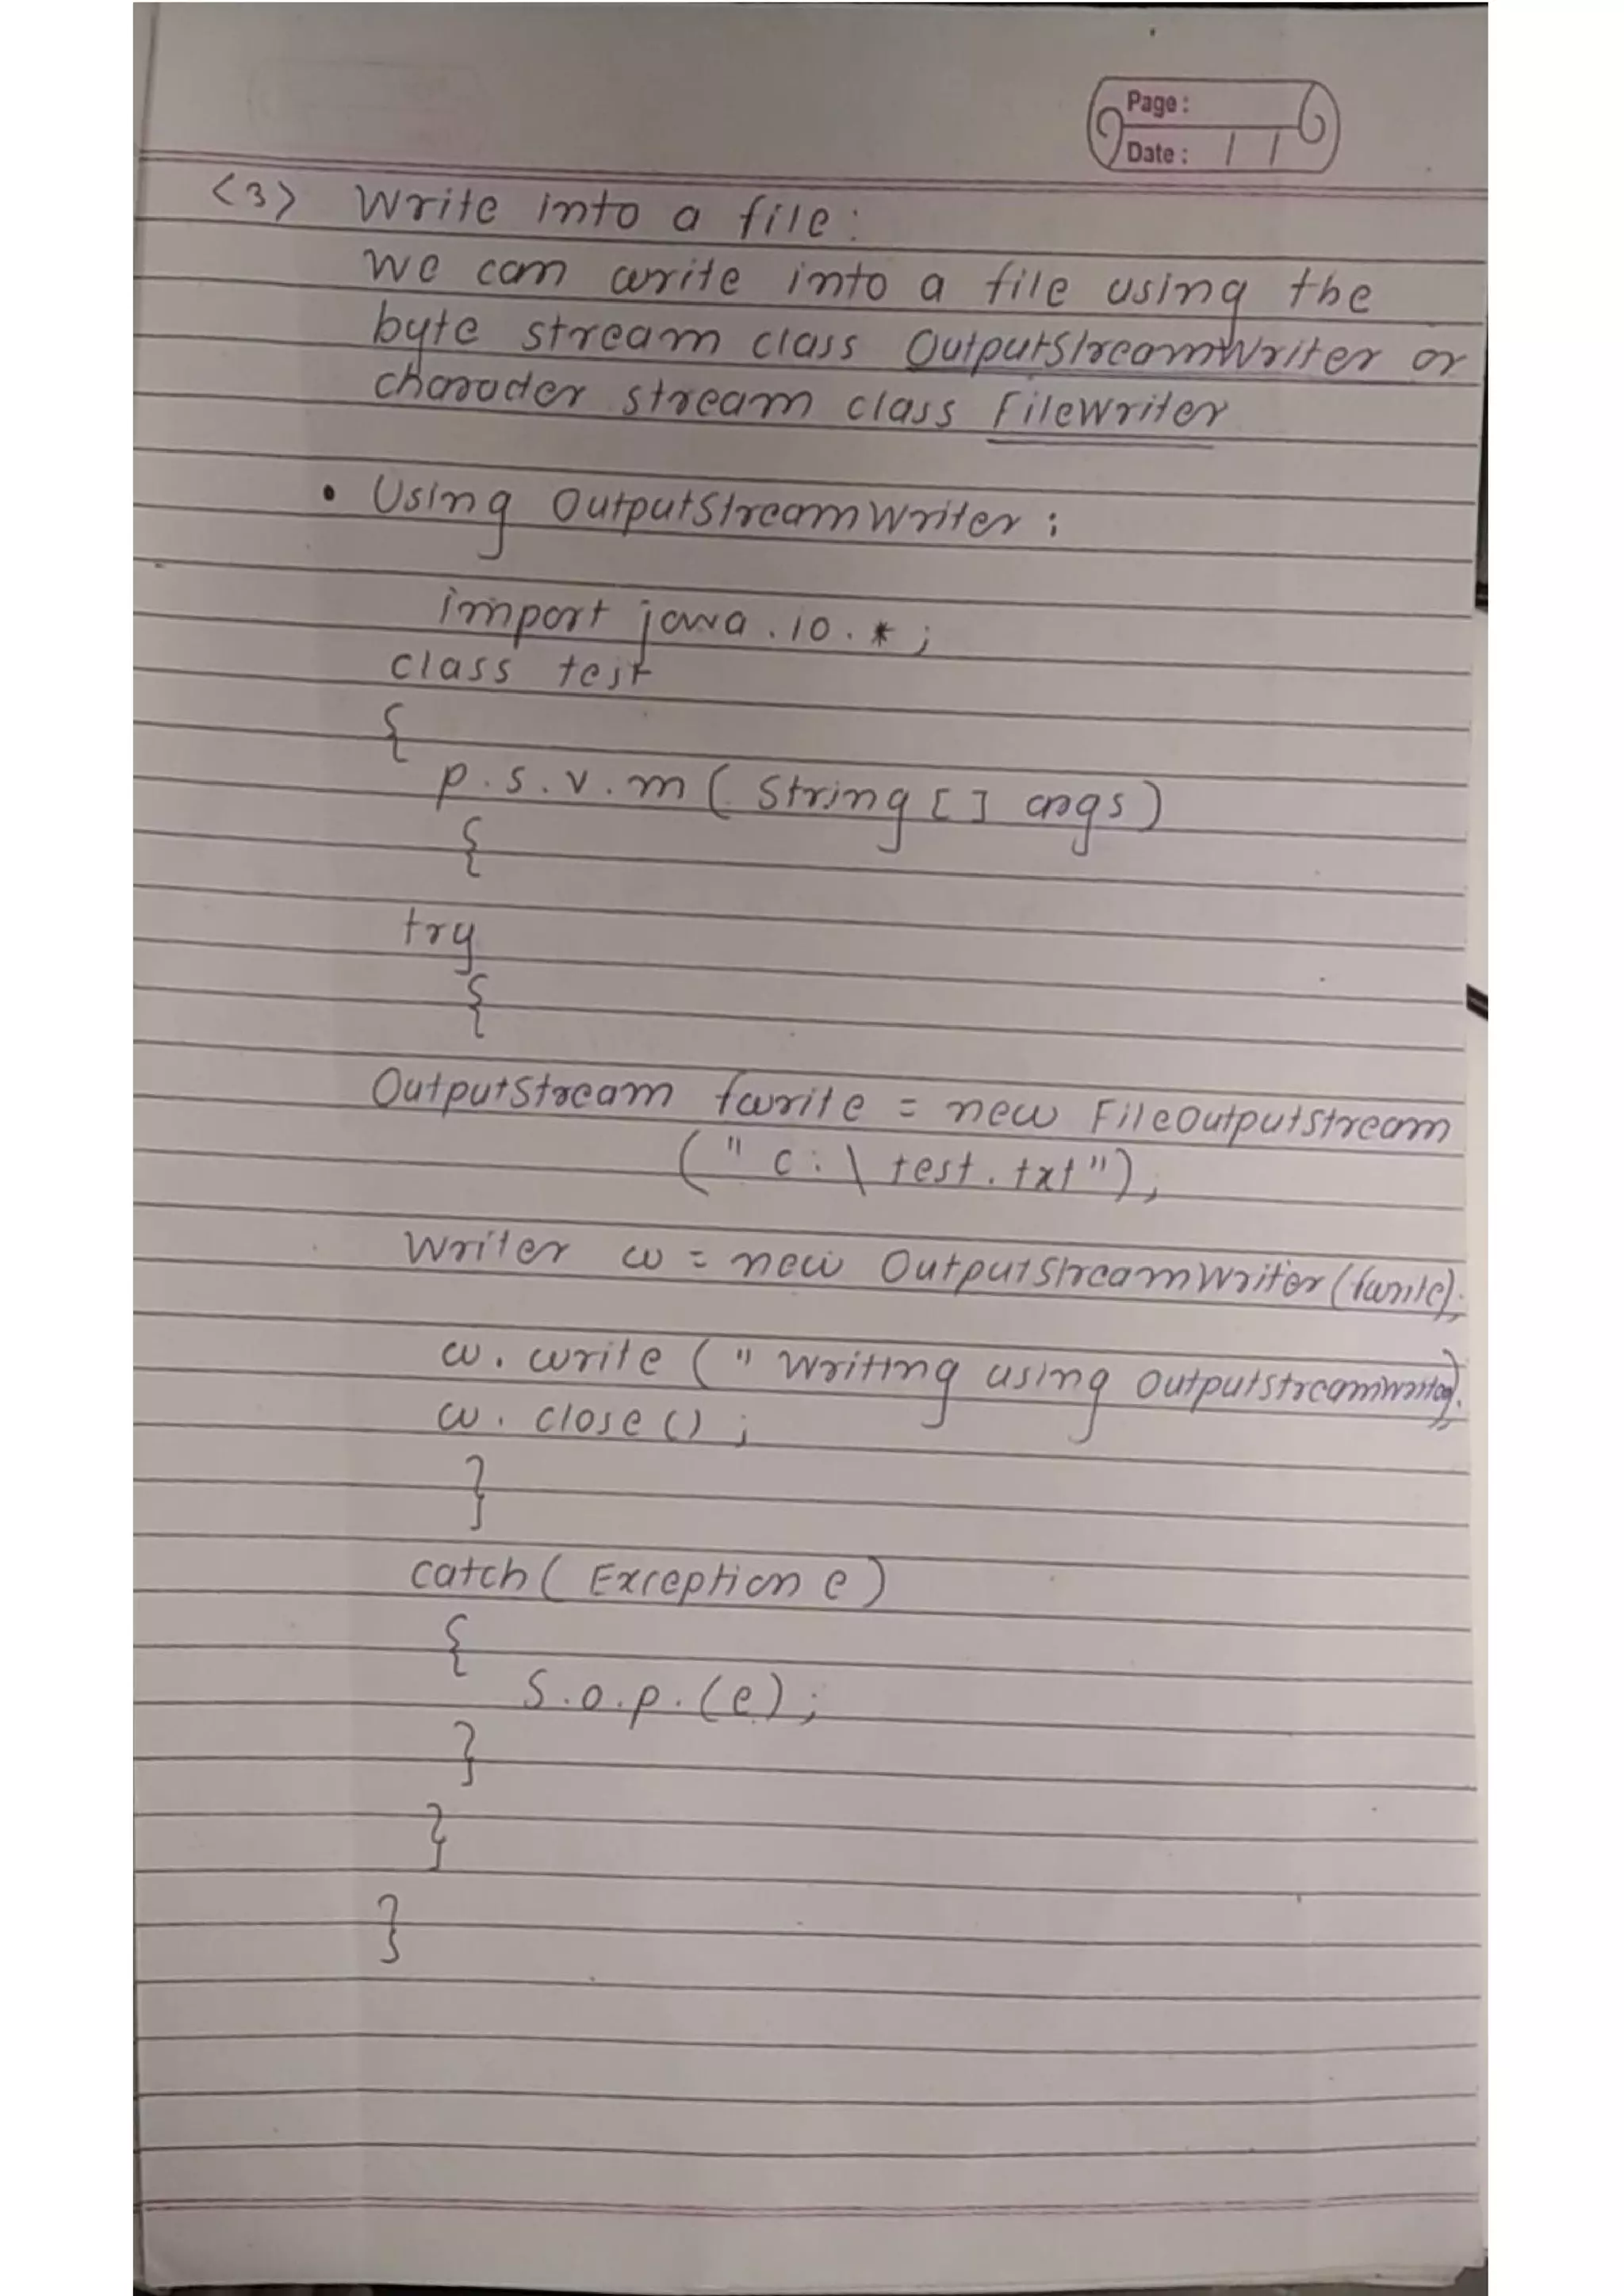 Page :
Date : / /
<3> Write into a file :
We can write into a file using the
byte stream class OutputStreamWriter or
character stream class FileWriter
• Using OutputStreamWriter :
import java.io.*;
class test
{
p.s.v.m ( String [ ] args )
{
try
{
OutputStream fwrite = new FileOutputStream
(" c:\ test.txt");
Writer w = new OutputStreamWriter (fwrite);
w.write (" Writing using outputstreamwriter");
w.close();
}
catch ( Exception e )
{
S.o.p.(e);
}
}
}